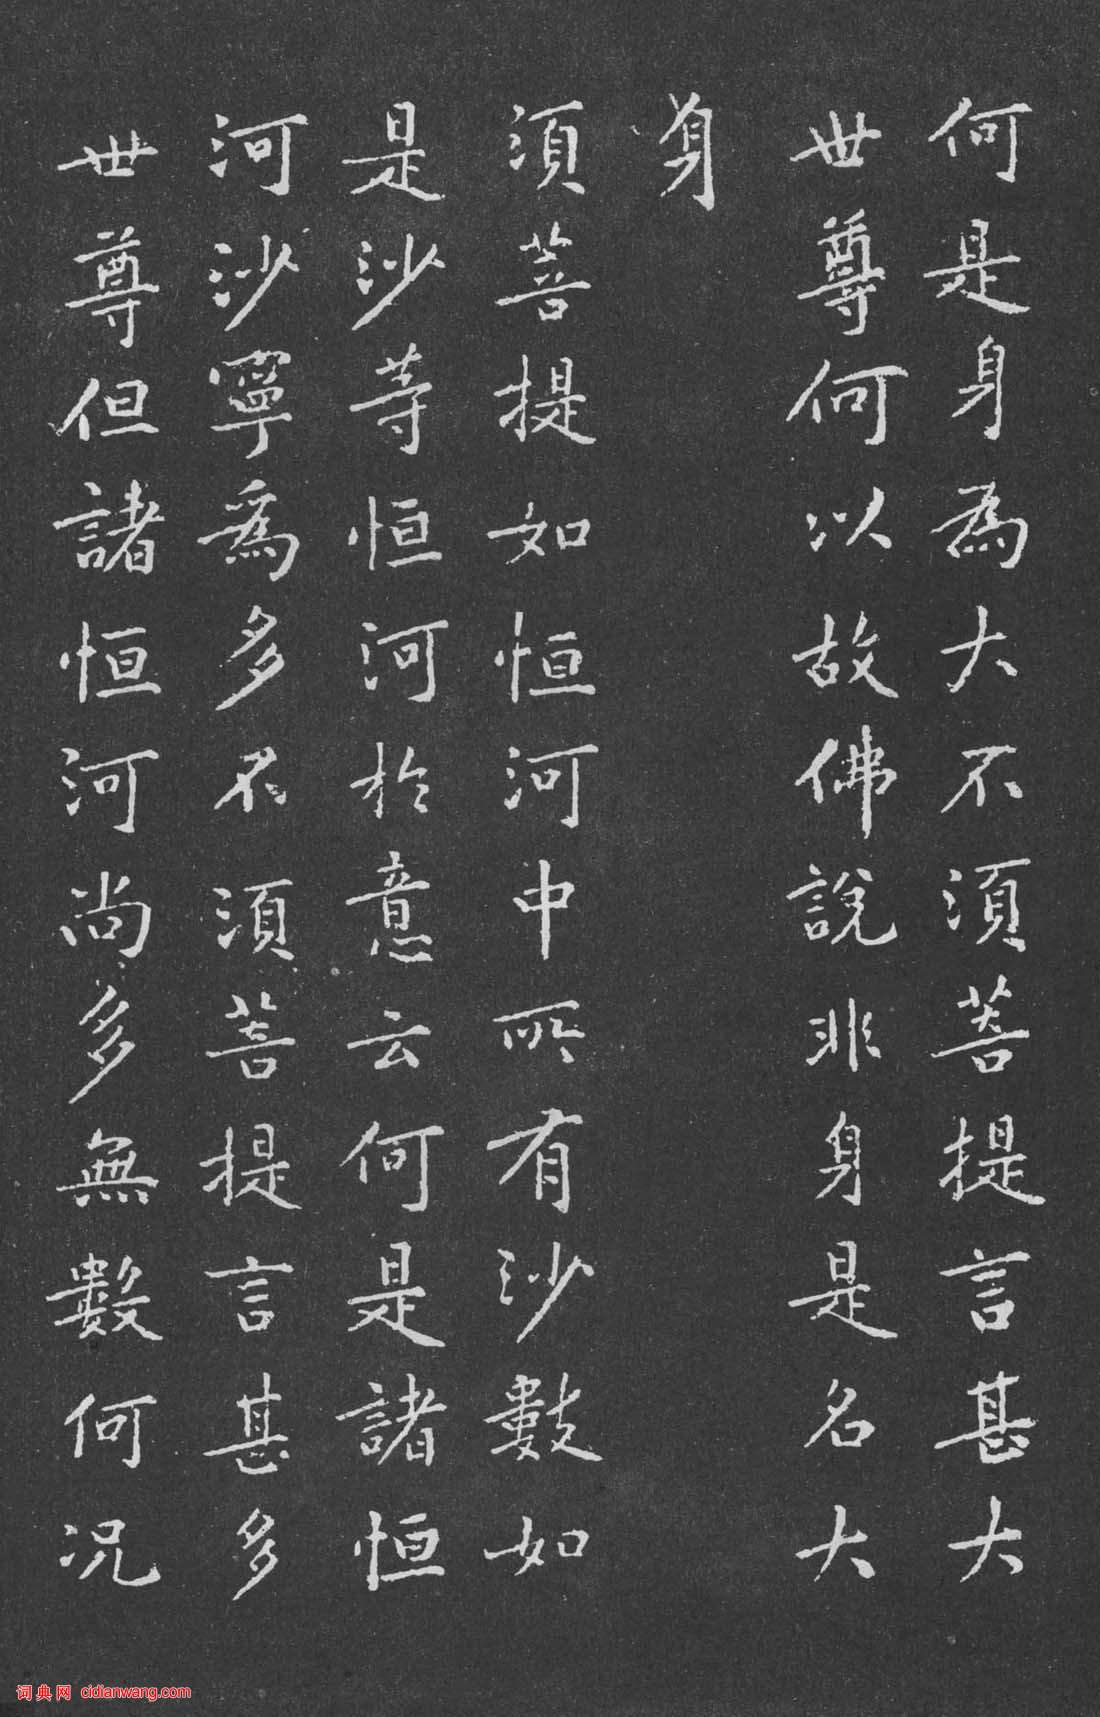 何是身為大不須菩提言甚大
世尊何以故佛說非身是名大
身
須菩提如恒河中所有沙數如
是沙等恒河於意云何是諸恒
河沙寧為多不須菩提言甚多
世尊但諸恒河尚多無數何況
词典网 cidianwang.com